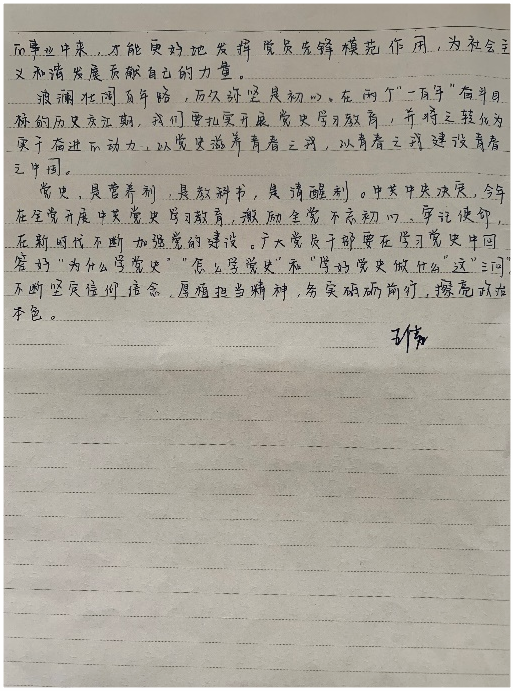 的事业中来，才能更好地发挥党员先锋模范作用，为社会主
义和谐发展贡献自己的力量。
波澜壮阔百年路，历久弥坚是初心。在两个"一百年"奋斗目
标的历史交汇期，我们要扎实开展党史学习教育，并将之转化为
实干奋进的动力，以党史滋养青春之我，以青春之我建设青春
之中国。
党史，是营养剂，是教科书，是清醒剂。中共中央决定，今年
在全党开展中共党史学习教育，激励全党不忘初心、牢记使命，
在新时代不断加强党的建设。广大党员干部要在学习党史中回
答好"为什么学党史""怎么学党史"和"学好党史做什么"这"三问"，
不断坚定信仰信念，厚植担当精神，务实砥砺前行，擦亮政治
本色。